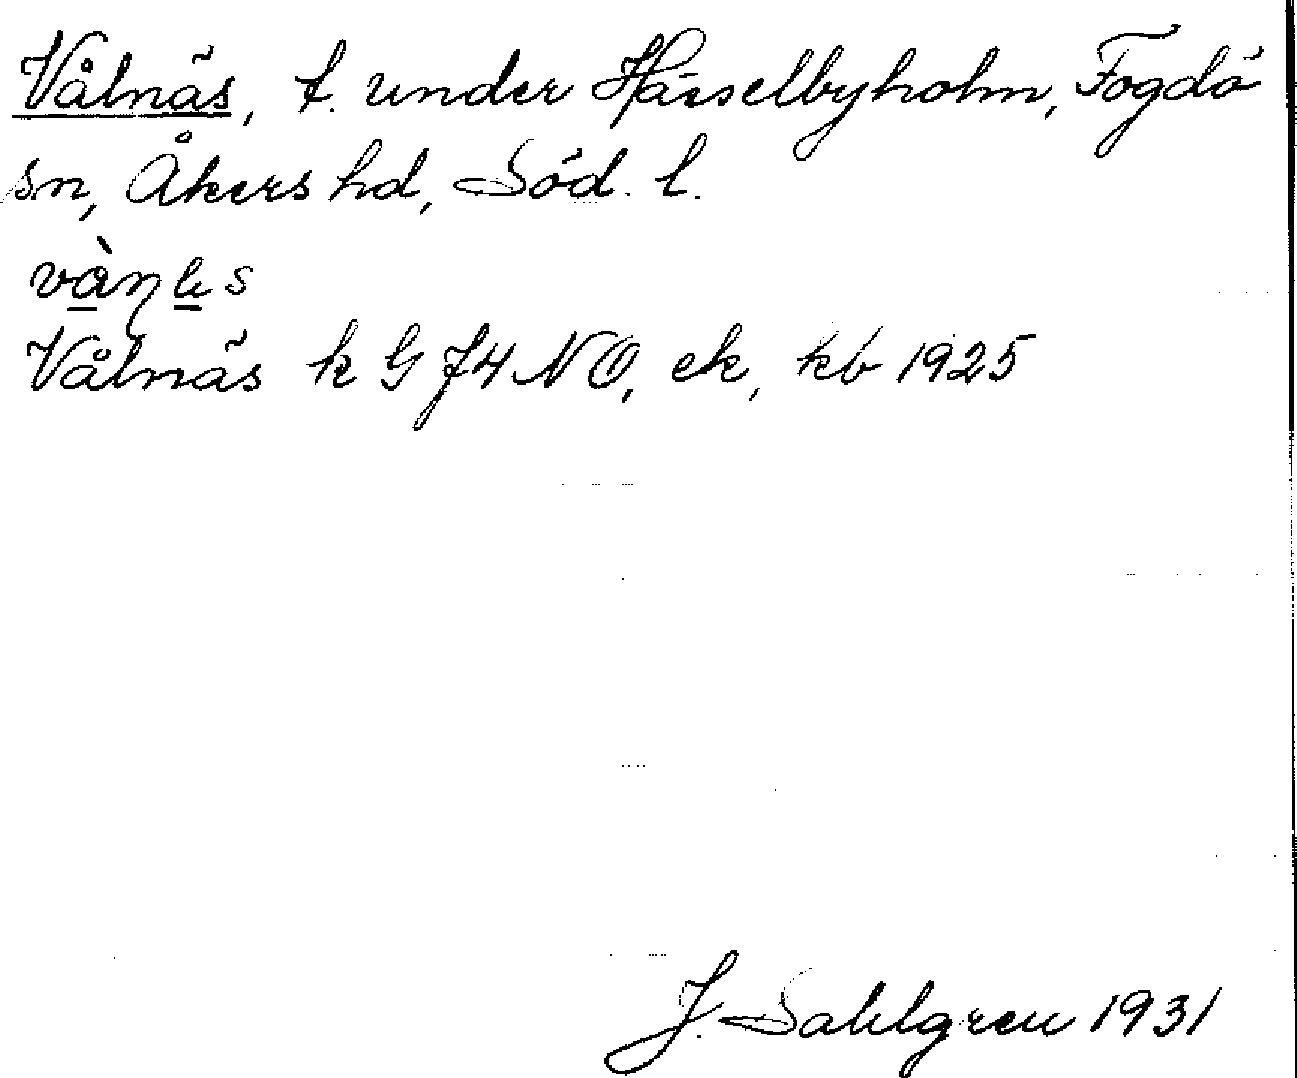 Vålnäs, t. under Hässelbyholm, Fogdö
sn, Åkers hd, Söd. l.
Vålnäs k G J4 NO, ek, kb 1925
J. Sahlgren 1931